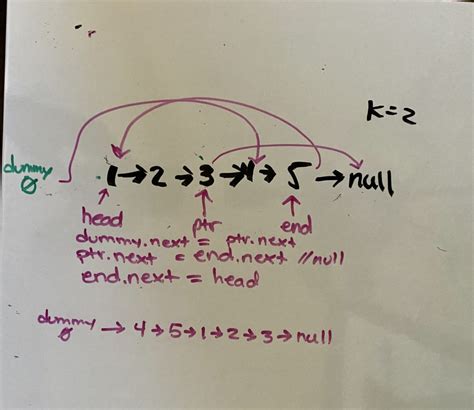 r
K=2
dummy 0
1→2→3→4→5→null
head ptr end
dummy.next = ptr.next
ptr.next = end.next //null
end.next = head
dummy 0 → 4→5→1→2→3→null